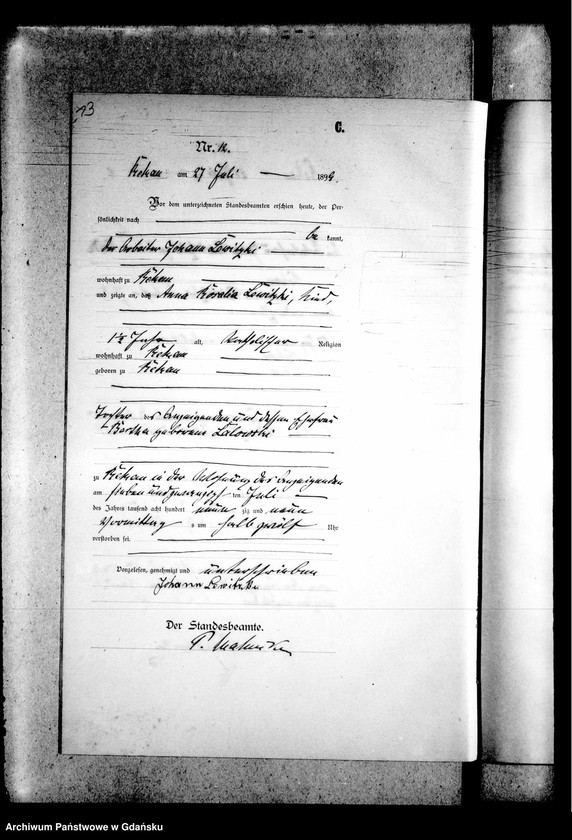 13
C.
Nr. 12.
Rekau am 27 Juli 1899.
Vor dem unterzeichneten Standesbeamten erschien heute, der Per-
sönlichkeit nach
be kannt,
der Arbeiter Johann Lewitzki
wohnhaft zu Rekau
und zeigte an, daß Anna Rosalia Lewitzki, Kind,
1½ Jahr alt, katholischer Religion
wohnhaft zu Rekau
geboren zu Rekau
Tochter des Anzeigenden und dessen Ehefrau
Bertha geborene
zu Rekau in der Wohnung des Anzeigenden
am sieben und zwanzigsten ten Juli
des Jahres tausend acht hundert neun zig und neun
Vormittag s um halb zwölf Uhr
verstorben sei.
Vorgelesen, genehmigt und unterschrieben
Johann Lewitzki
Der Standesbeamte.
Archiwum Państwowe w Gdańsku